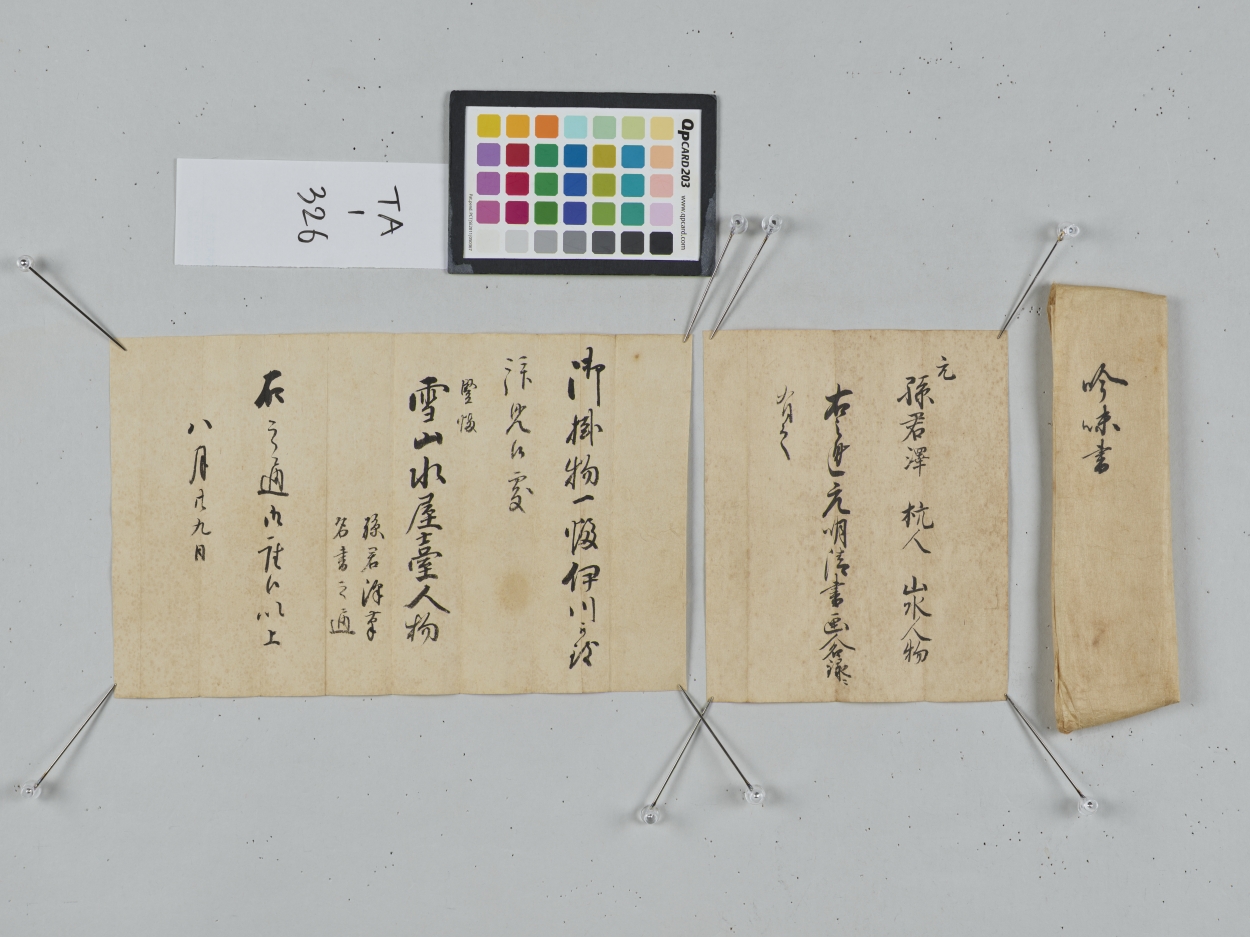 吟味書
元
孫君澤 杭人 山水人物
右之通元明清書画人名録ニ
有之
御掛物一幅伊川
拝見被
竪幅
雪山水屋臺人物
孫君澤筆
名書之通
右之通御座候以上
八月廿九日
TA
1
326
QPCARD 203 www.qpcard.com